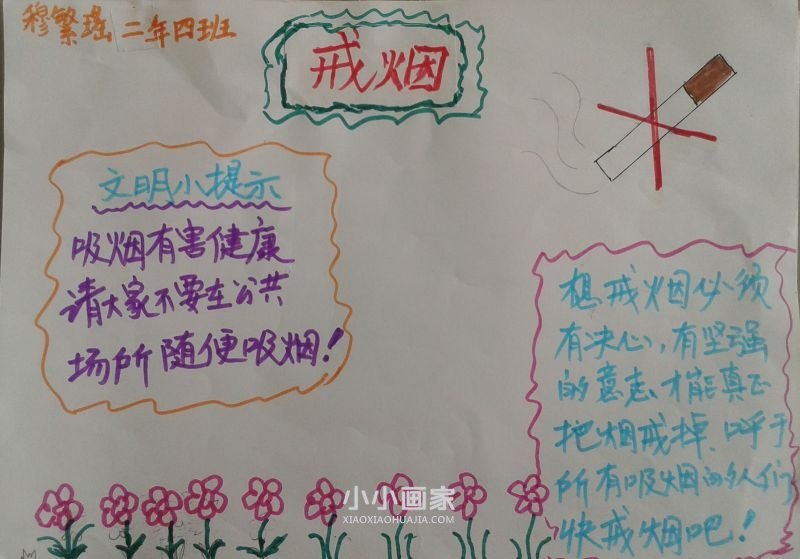 穆繁瑶 二年四班
戒烟
文明小提示
吸烟有害健康
请大家不要在公共
场所随便吸烟！
想戒烟必须
有决心，有坚强
的意志才能真正
把烟戒掉.呼于
所有吸烟的人们
快戒烟吧！
小小画家
XIAOXIAOHUAJIA.COM